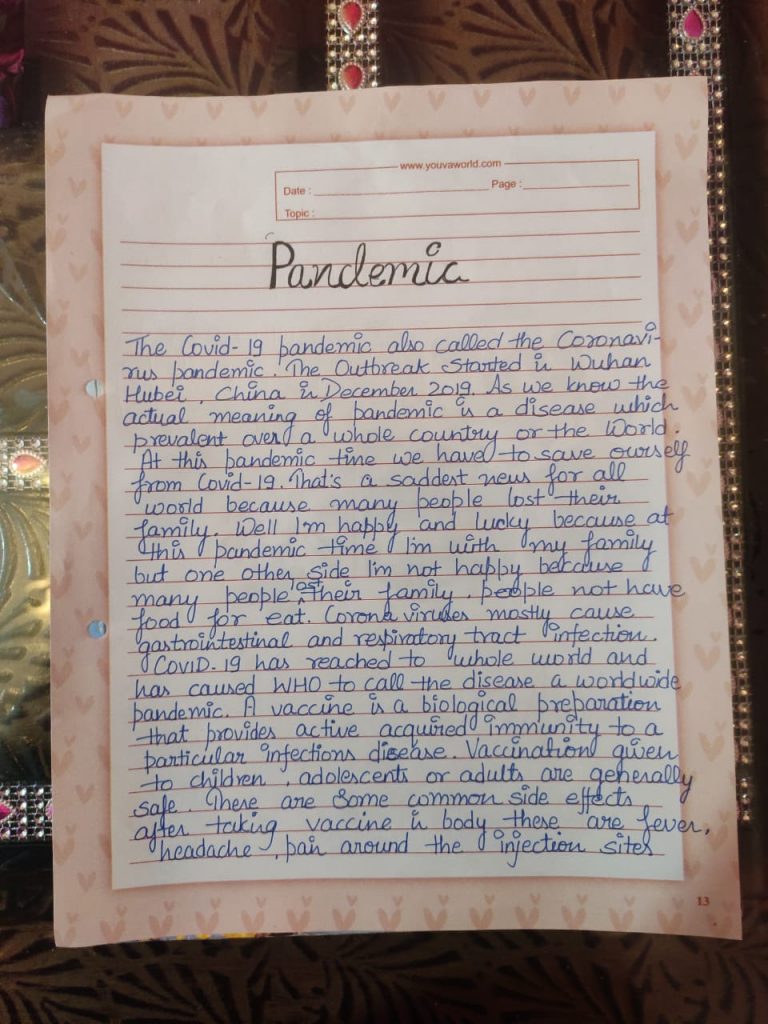 www.youvaworld.com
Date : Page :
Topic :
Pandemic
The Covid-19 pandemic also called the Coronavi-
rus pandemic. The Outbreak Started in Wuhan
Hubei, China in December 2019. As we know the
actual meaning of pandemic is a disease which
prevalent over a whole country or the World.
At this pandemic time we have to save ourself
from Covid-19. That's a saddest news for all
world because many people lost their
family. Well I'm happy and lucky because at
this pandemic time I'm with my family
but one other side I'm not happy because
many people lost their family. people not have
food for eat. Corona viruses mostly cause
gastrointestinal and respiratory tract infection.
COVID-19 has reached to whole world and
has caused WHO to call the disease a worldwide
pandemic. A vaccine is a biological preparation
that provides active acquired immunity to a
particular infections disease. Vaccination given
to children, adolescents or adults are generally
safe. There are Some common side effects
after taking vaccine in body these are fever,
headache, pain around the injection sites
13